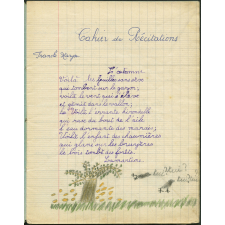 Cahier de Récitations
L'automne
Voilà les feuilles sans sève
qui tombent sur le gazon;
voilà le vent qui s'élève
et gémit dans le vallon;
Voilà l'errante hirondelle
qui rase du bout de l'aile
l'eau dormante des marais;
Voilà l'enfant des chaumières
qui glane sur les bruyères
le bois tombé des forêts.
Lamartine